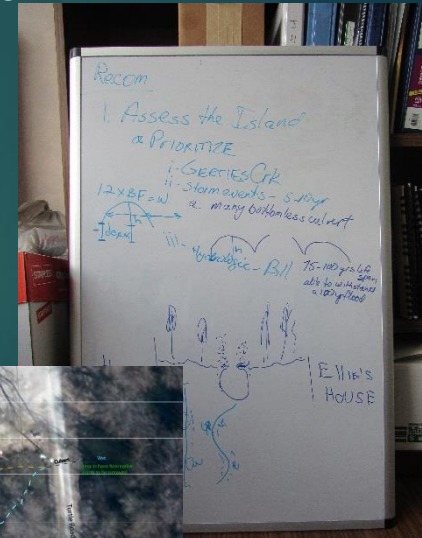 Recom
1. Assess the Island
a PRIORITIZE
i - GEERTIES Crk
ii - storm events -
a. many bottomless culvert
1.2 x BF = W
iii - Hydrologic - Bill
75-100 yrs life
span
able to withstand
a 100yr flood
Ellin's
HOUSE
Culvert